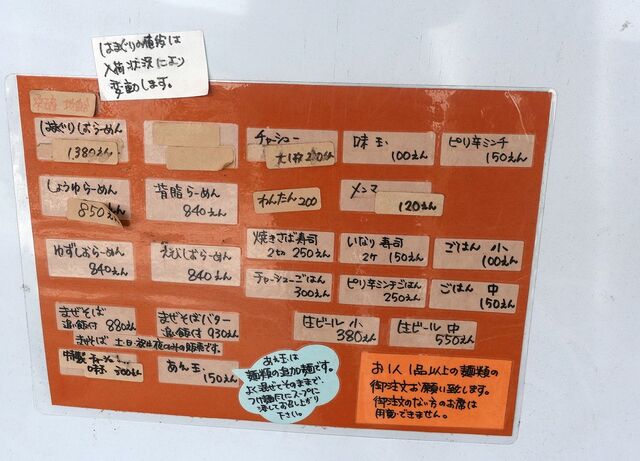 はまぐりの値段は
入荷状況により
変動します。
はまぐりしおらーめん
1,380えん
チャシュー
大1枚200えん
味玉
100えん
ピリ辛ミンチ
150えん
しょうゆらーめん
850えん
背脂らーめん
840えん
わんたん200
メンマ
120えん
ゆずしおらーめん
840えん
えびしおらーめん
840えん
焼きさば寿司
2切 250えん
いなり寿司
2ケ 150えん
ごはん 小
100えん
チャーシューごはん
300えん
ピリ辛ミンチごはん
250えん
ごはん 中
150えん
まぜそば
追い飯付 880えん
まぜそばバター
追い飯付 930えん
生ビール 小
380えん
生ビール 中
550えん
まぜそば 土日祝は夜のみの販売です。
特製
あえ玉
150えん
あえ玉は
麺類の追加麺です。
よく混ぜてそのままで、
つけ麺風にスープに
浸してお召し上がり
下さい。
お1人1品以上の麺類の
御注文お願い致します。
御注文のない方のお席は
用意できません。